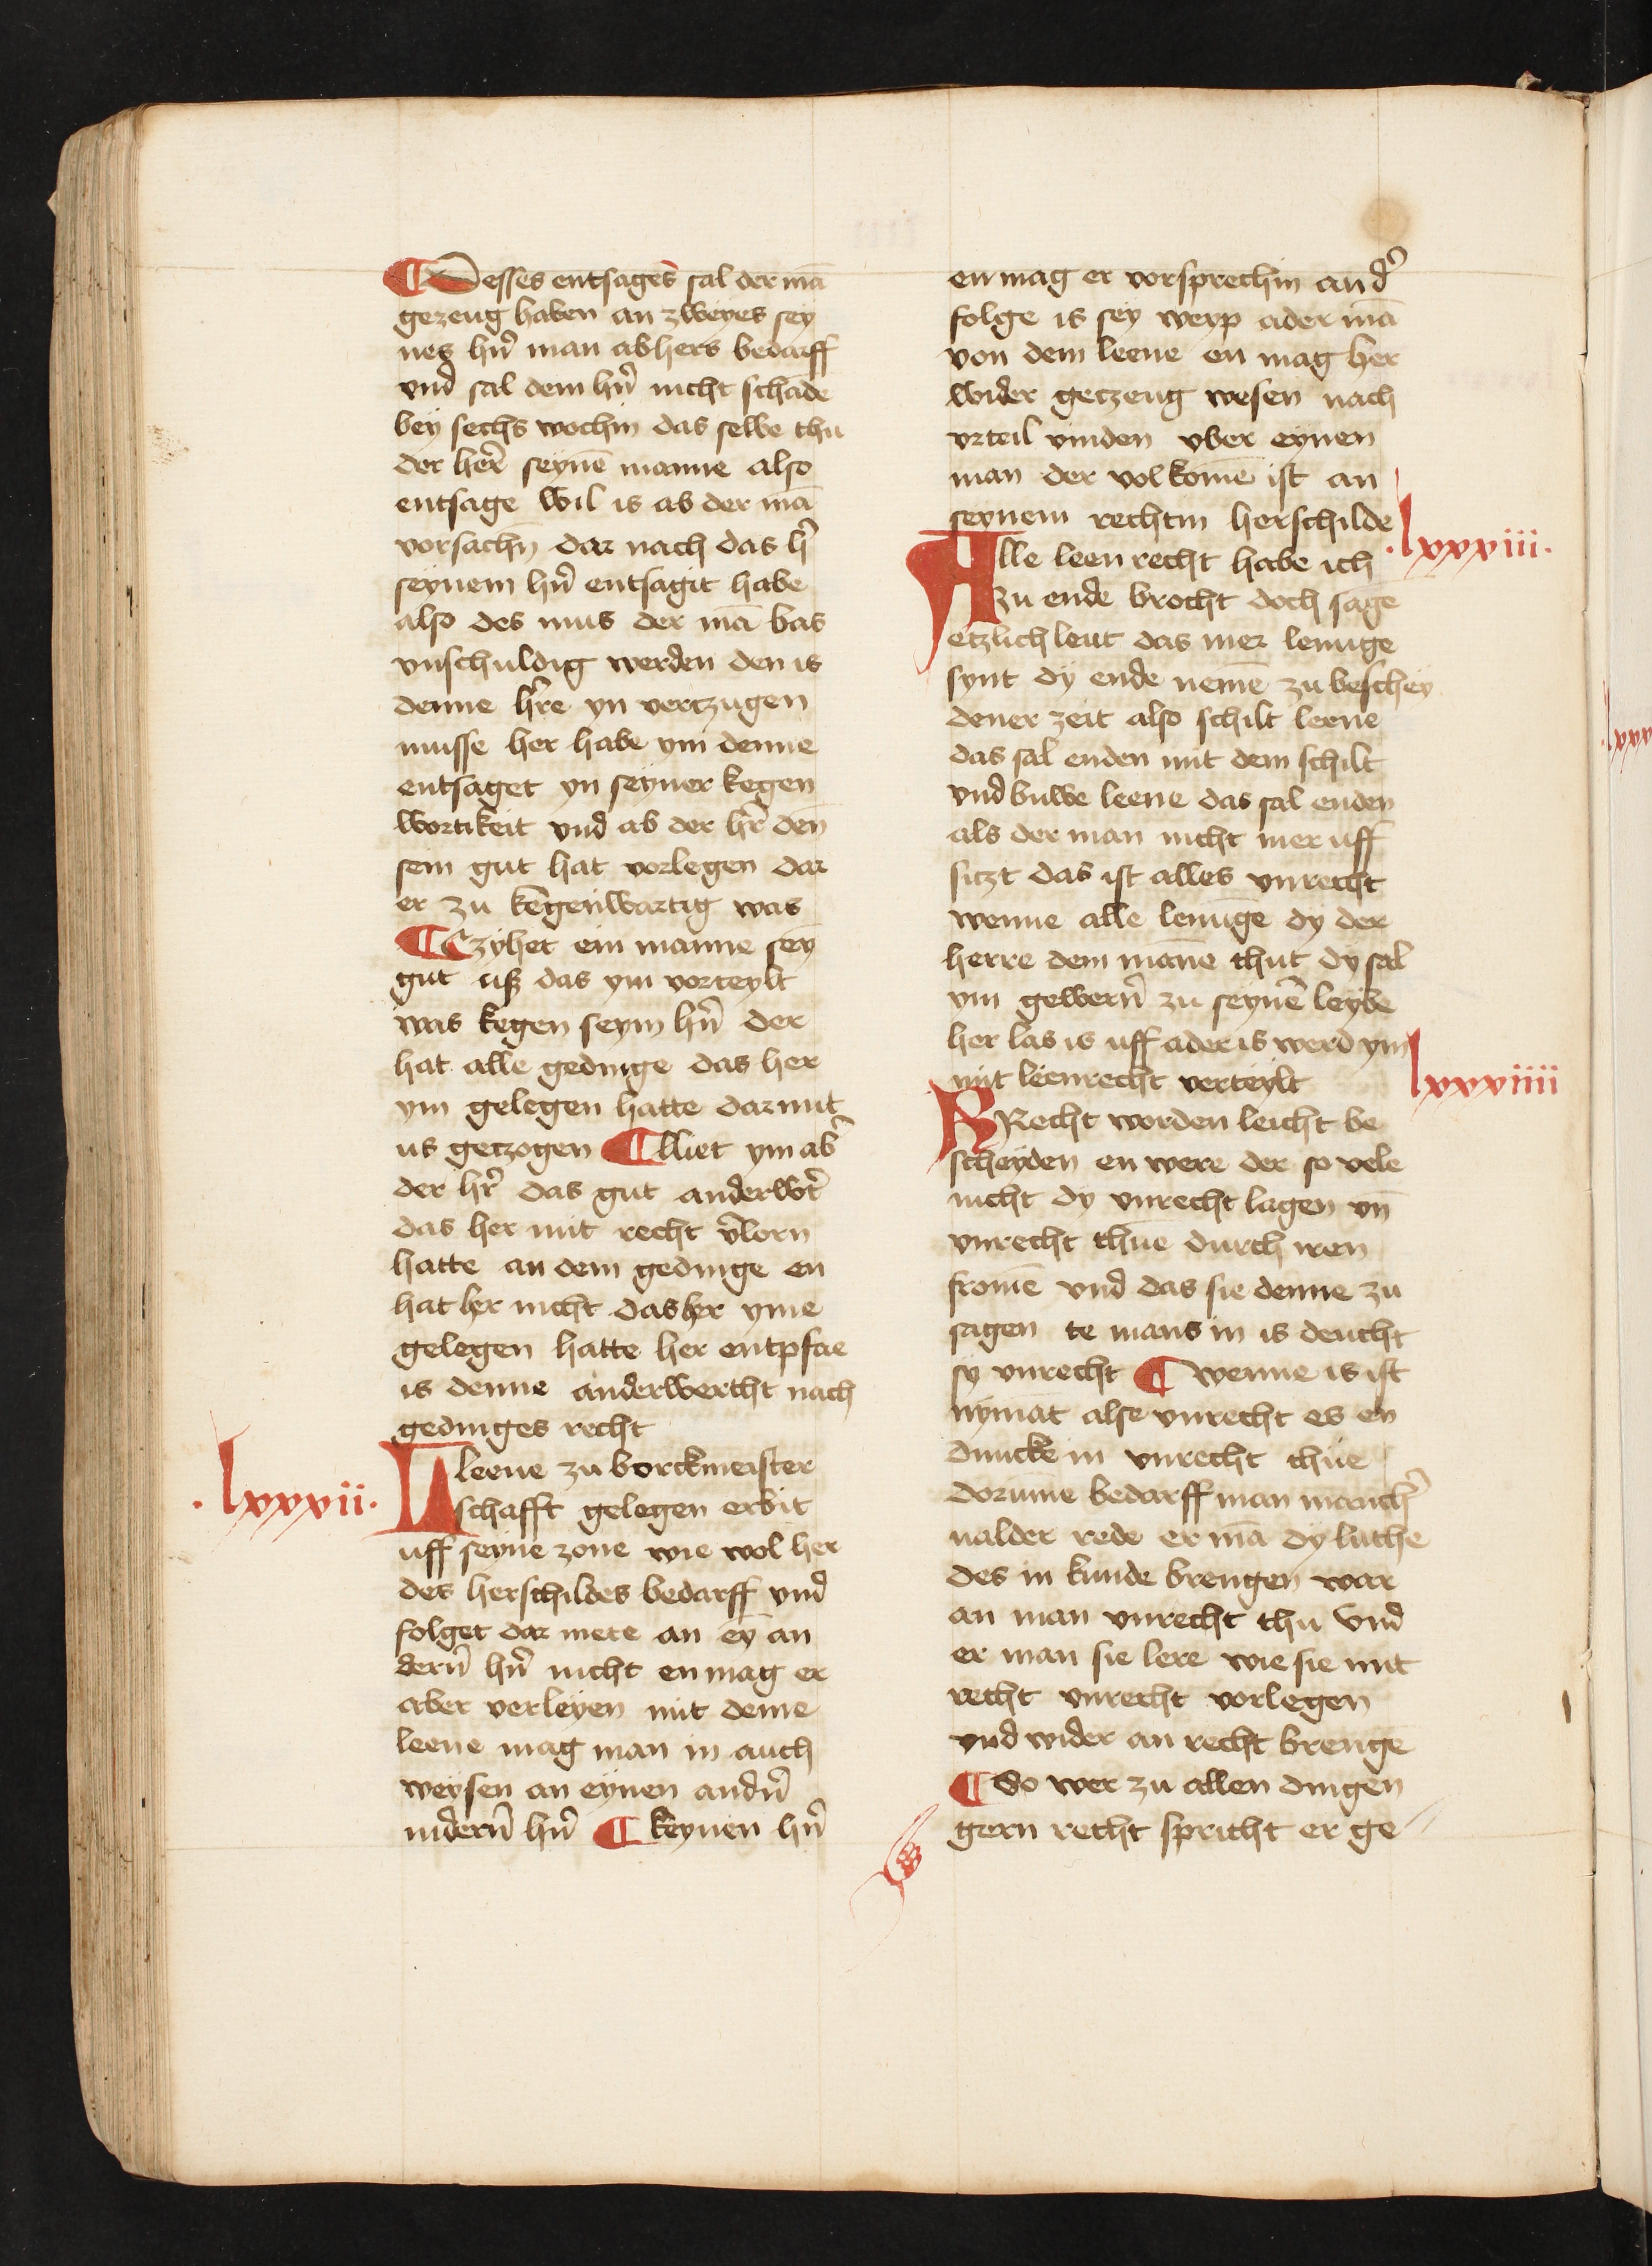 ¶ Desses entsages sal der mā
gezeug haben an zweyes sey
nes hn̄ man ab hers bedarff
vnd sal dem hn̄ nicht schade
bey sechs wochin das selbe thu
der her̄ seynē manne also
entsage wil is ab der mā
vorsachn̄ dar nach das h̄
seynem hn̄ entsagit habe
also des mus der mā bas
vnschuldig werden den is
denne hr̄e yn vertzugen
musse her habe ym denne
entsaget yn seyner kegen
wortikeit vnd ab der hr̄ den
sein gut hat vorlegen dar
er zu kēgenwartig was
¶ Czyhet ein manne sey
gut uß das ym vorteylt
was kegen seym hn̄ der
hat alle gedinge das her
ym gelegen hatte dar mit
us getzogen ¶ lliet ym ab̄
der hr̄ das gut anderwt̄
das her mit recht v̄lorn
hatte an dem gedinge en
hat her nicht das her yme
gelegen hatte her entpfae
is denne anderwercht nach
gedinges recht
.lxxxvii.
L leene zu borckmeister
schafft gelegen erbit
uff seyne zone wie wol her
des herschildes bedarff vnd
folget dar mete an ey an
dern̄ hn̄ nicht en mag er
aber verleyen mit deme
leene mag man in auch
weysen an eynen andn̄
nidern̄ hn̄ ¶ keynen hn̄
en mag er vorsprechin an d̄
folge is sey weyp ader mā
von dem leene en mag her
wider getzeug wesen nach
vrteil vinden vber eynen
man der volkome ist an
seynem rechtin herschilde
.lxxxviii.
Alle leen recht habe ich
zu ende brocht doch sage
etzlich leut das mer lenuge
synt dy ende nemē zu beschey
dener zeit also schilt leene
das sal enden mit dem schilt
vnd buwe leene das sal enden
als der man nicht mer uff
siczt das ist alles vnrecht
wenne alle lenuge dy der
herre dem manne thut dy sal
ym gewern̄ zu seynē leybe
her las is uff ader is werd ym
mit leenrecht verteylt
lxxxviiii
R Recht worden leicht be
scheyden en were der so vele
nicht dy vnrecht lagen vn̄
vnrecht thue durch iren
fromē vnd das sie denne zu
sagen te mans in is deucht
sy vnrecht ¶ wenne is ist
nymāt alse vnrecht es en
duncke in vnrecht thue
dorūme bedarff man manch̄
ualder rede er mā dy luthe
des in kunde brengen war
an man vnrecht thu vnd
er man sie lere wie sie mit
recht vnrecht vorlegen
vnd wider an recht brenge
¶ So wer zu allen dingen
gern recht spricht er ge